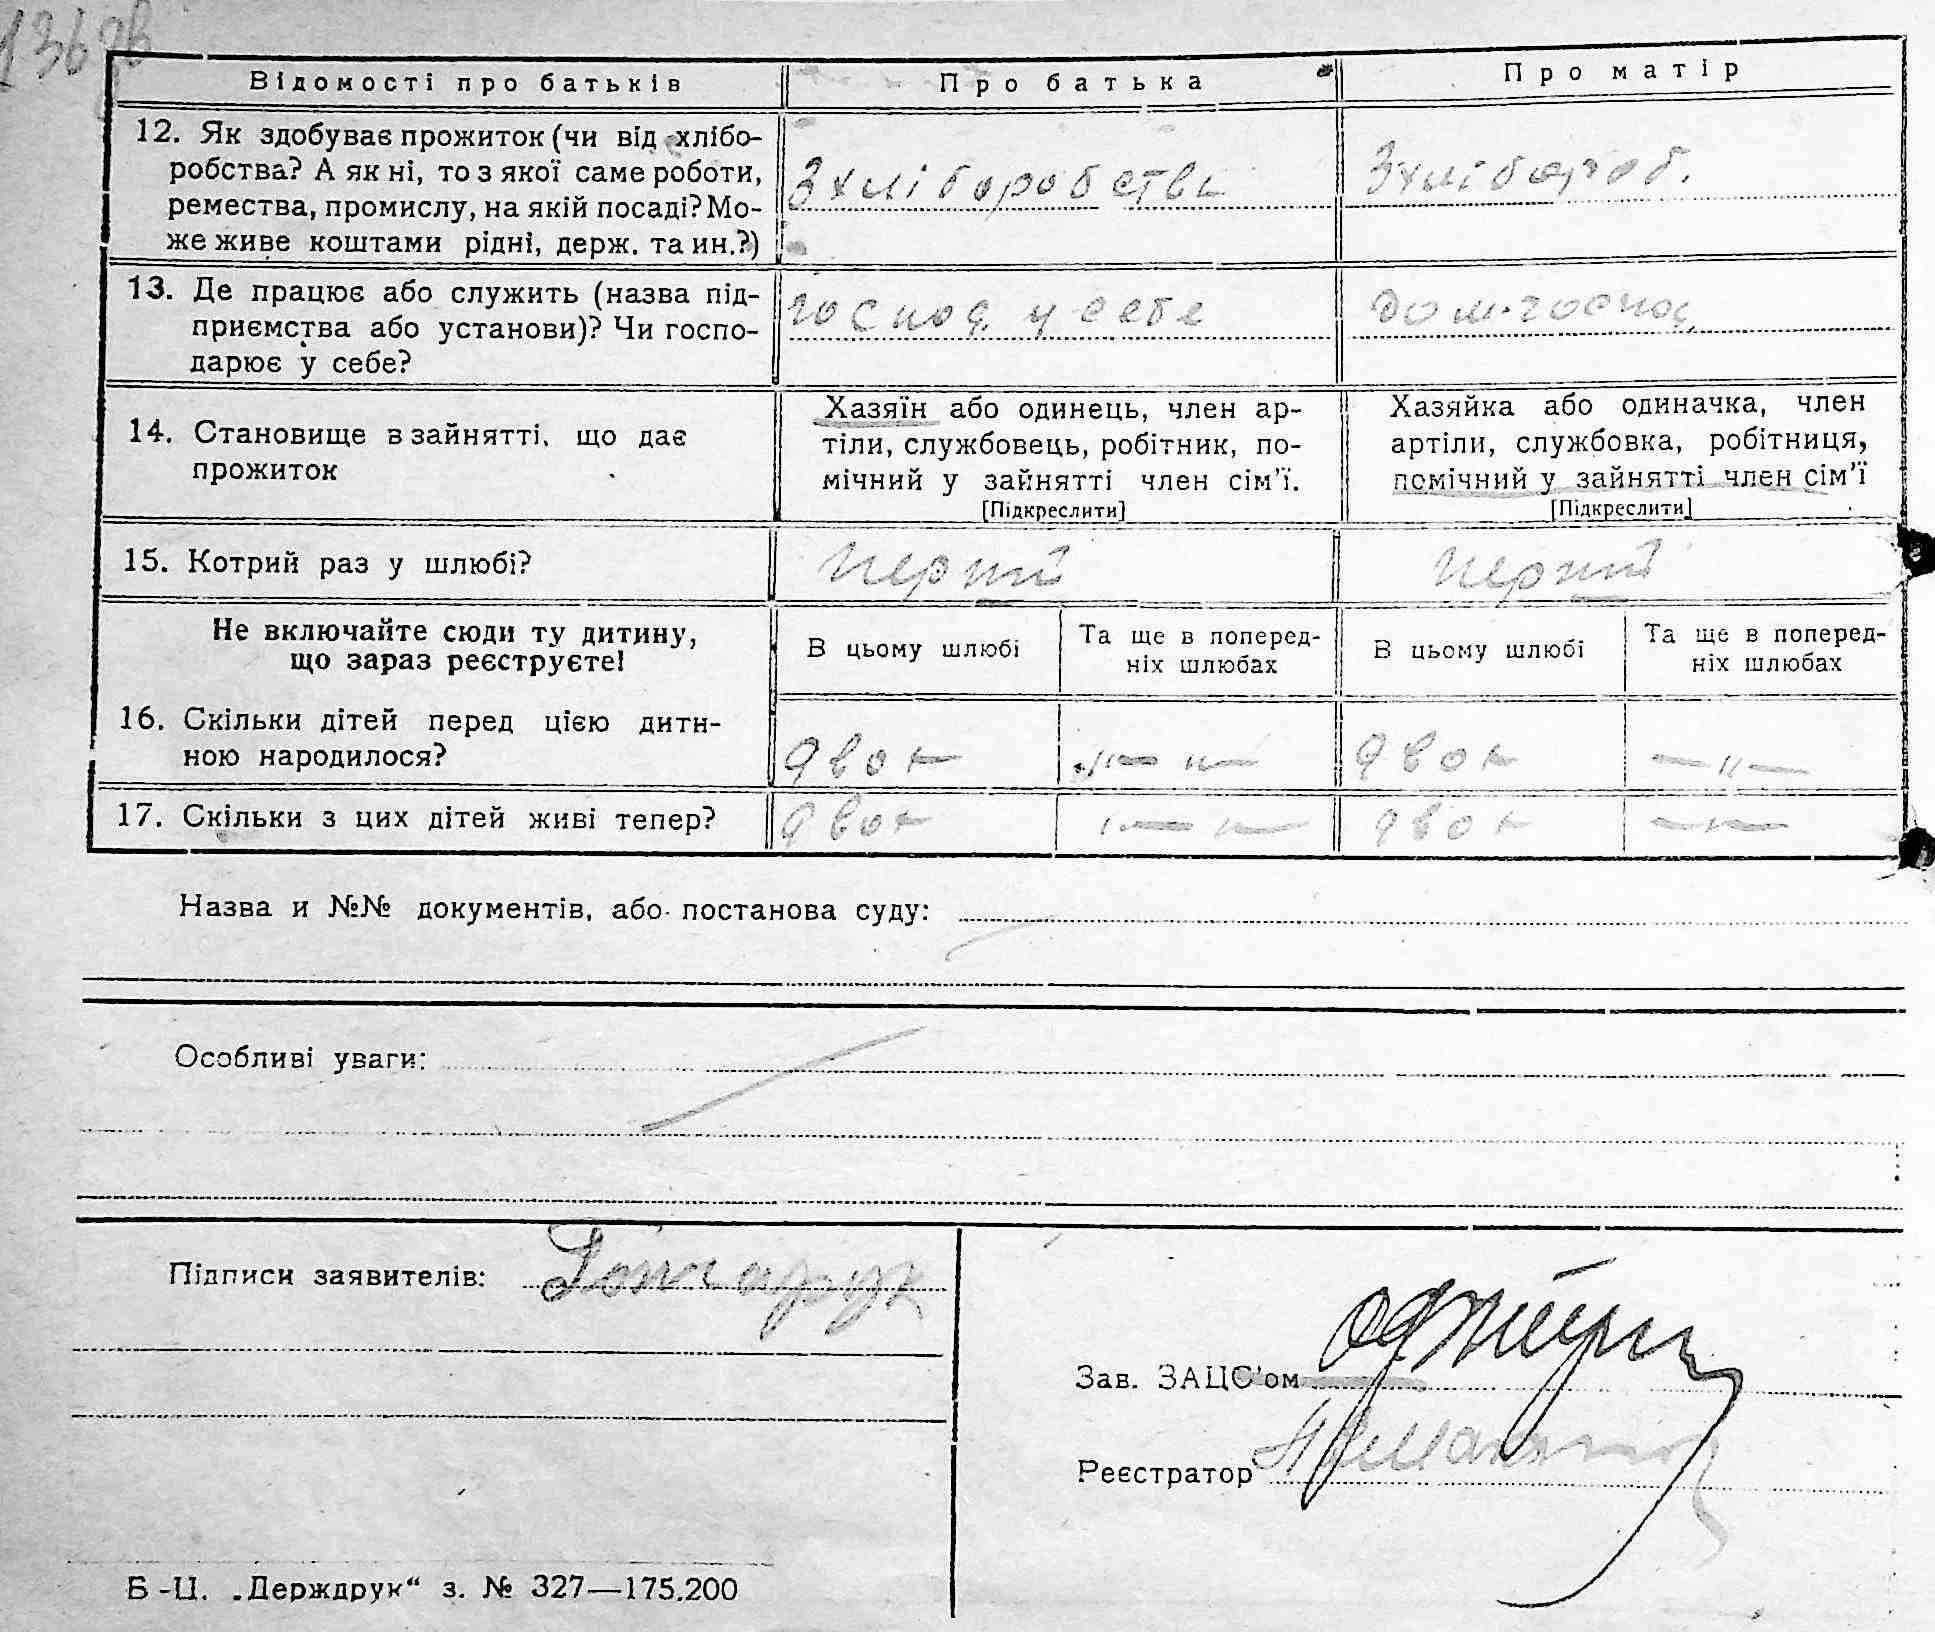 136 зв
Відомості про батьків
Про батька
Про матір
12. Як здобуває прожиток (чи від хлібо-
робства? А як ні, то з якої саме роботи,
ремества, промислу, на якій посаді? Мо-
же живе коштами рідні, держ. та ин.?)
З хліборобства
З хлібороб.
13. Де працює або служить (назва під-
приємства або установи)? Чи госпо-
дарює у себе?
господ. у себе
дом. господ.
14. Становище в зайнятті, що дає
прожиток
Хазяїн або одинець, член ар-
тіли, службовець, робітник, по-
мічний у зайнятті член сім'ї.
[Підкреслити]
Хазяйка або одиначка, член
артіли, службовка, робітниця,
помічний у зайнятті член сім'ї
[Підкреслити]
15. Котрий раз у шлюбі?
перший
перший
Не включайте сюди ту дитину,
що зараз реєструєте!
В цьому шлюбі
Та ще в поперед-
ніх шлюбах
В цьому шлюбі
Та ще в поперед-
ніх шлюбах
16. Скільки дітей перед цією дити-
ною народилося?
двох
—„—
двох
—„—
17. Скільки з цих дітей живі тепер?
двох
—„—
двох
—„—
Назва и №№ документів, або постанова суду:
Особливі уваги:
Підписи заявителів:
Зав. ЗАЦС'ом
Реєстратор
Б-Ц. „Держдрук“ з. № 327—175.200